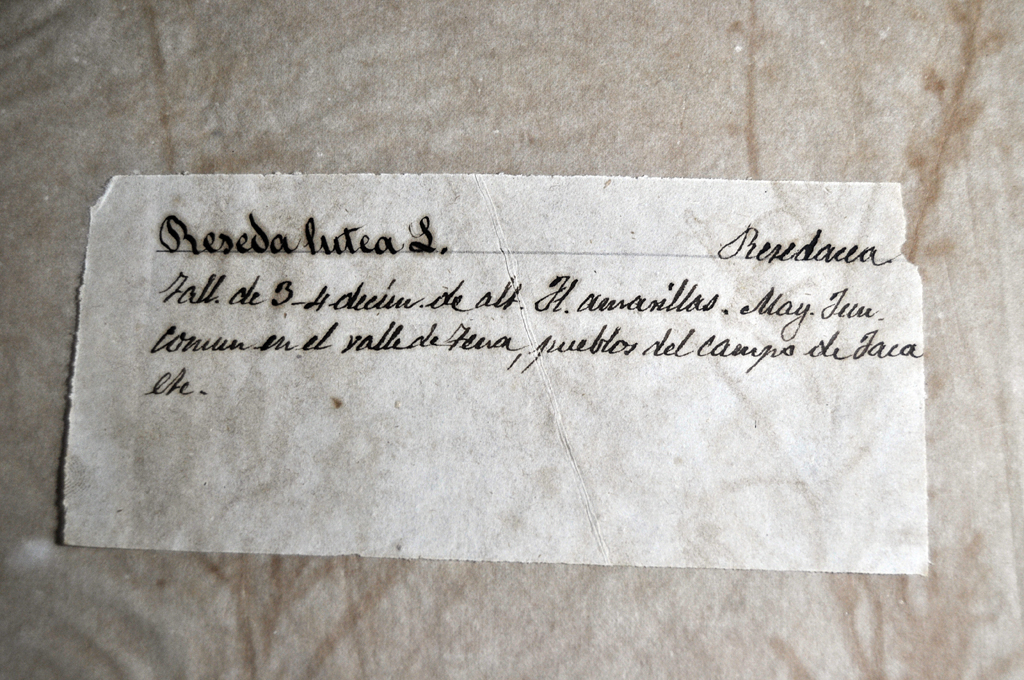 Reseda lutea L. Resedacea.
Tall. de 3-4 decím. de alt. Fl. amarillas. May. Jun.
Comun en el valle de Tena, pueblos del campo de Jaca
etc.